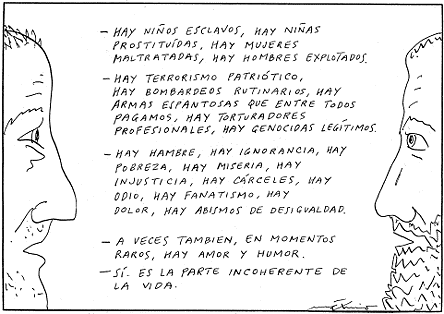 – HAY NIÑOS ESCLAVOS, HAY NIÑAS
PROSTITUÍDAS, HAY MUJERES
MALTRATADAS, HAY HOMBRES EXPLOTADOS.
– HAY TERRORISMO PATRIÓTICO,
HAY BOMBARDEOS RUTINARIOS, HAY
ARMAS ESPANTOSAS QUE ENTRE TODOS
PAGAMOS, HAY TORTURADORES
PROFESIONALES, HAY GENOCIDAS LEGÍTIMOS.
– HAY HAMBRE, HAY IGNORANCIA, HAY
POBREZA, HAY MISERIA, HAY
INJUSTICIA, HAY CÁRCELES, HAY
ODIO, HAY FANATISMO, HAY
DOLOR, HAY ABISMOS DE DESIGUALDAD.
– A VECES TAMBIEN, EN MOMENTOS
RAROS, HAY AMOR Y HUMOR.
– SÍ. ES LA PARTE INCOHERENTE DE
LA VIDA.